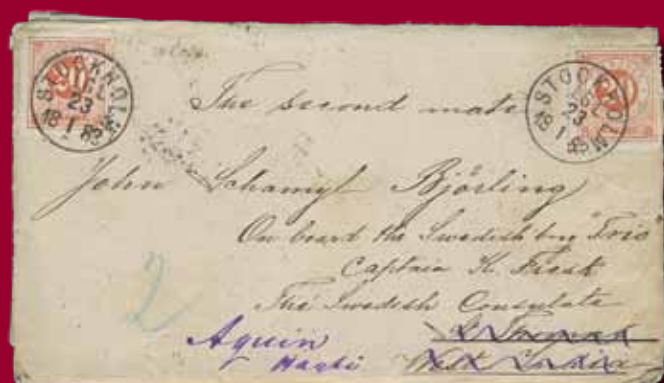 STOCKHOLM
23
18 1 83
STOCKHOLM
23
18 1 83
The second mate
John Schamyl Björling
On board the Swedish brig "Iris"
Captain K. Frisk
The Swedish Consulate
Aquin
Hayti West India
2